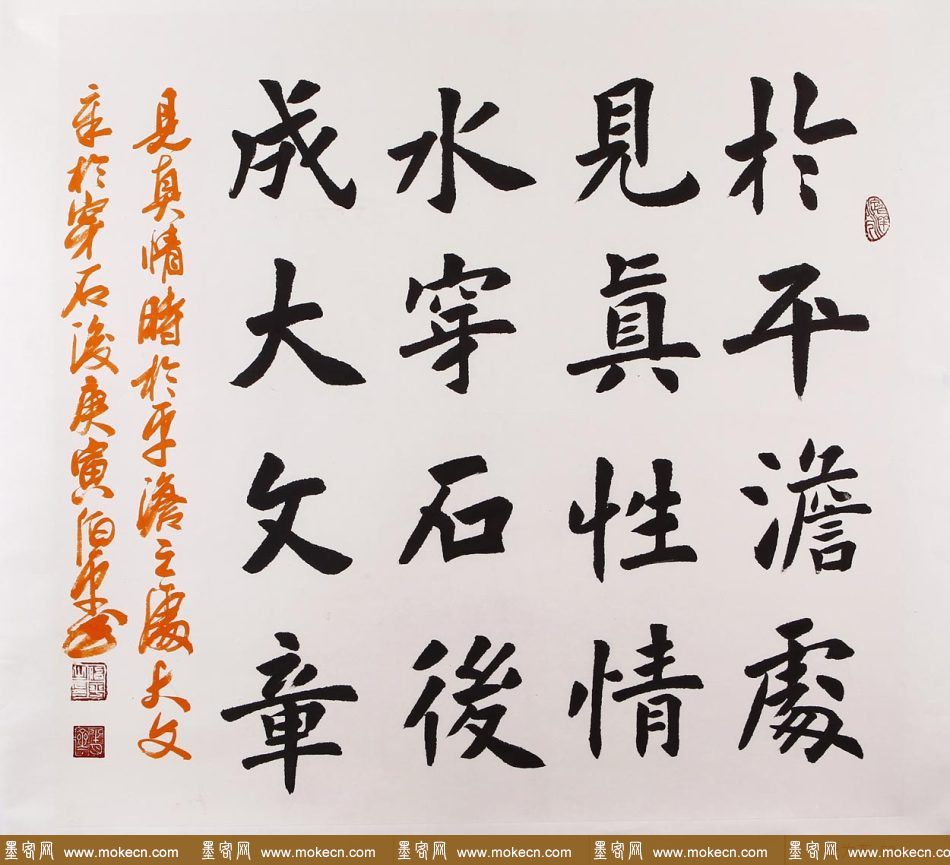 於平澹處
見真性情
水穿石後
成大文章
見真情時於平澹之處大文
章於穿石後庚寅伯平書
墨客网 www.mokecn.com 墨客网 www.mokecn.com 墨客网 www.mokecn.com 墨客网 www.mokecn.com 墨客网 www.mokecn.com